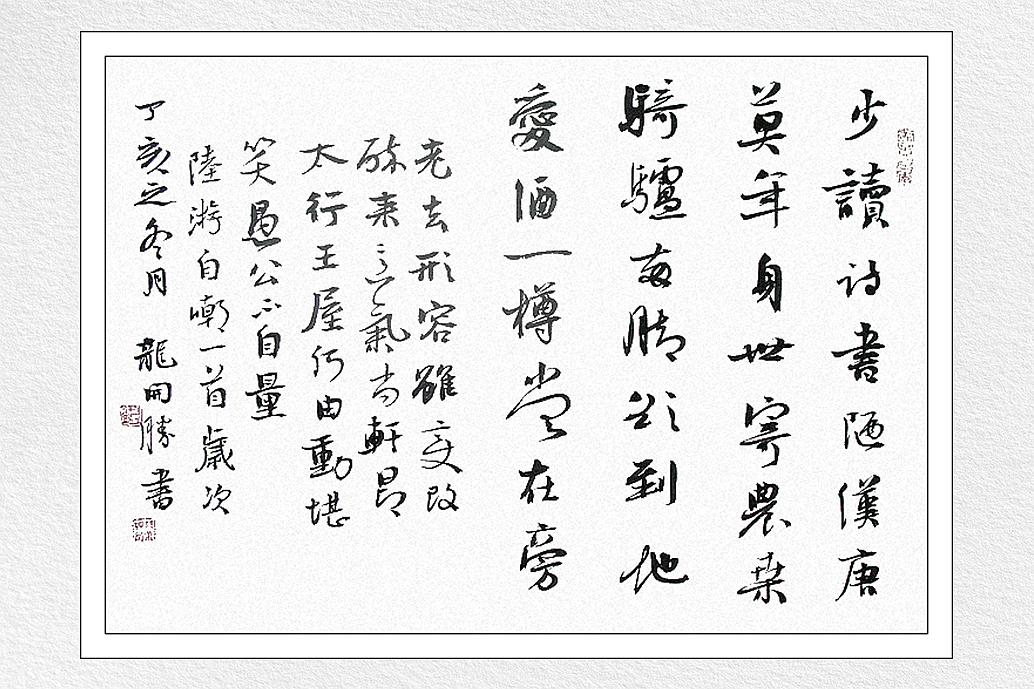 少讀诗書陋漢唐
莫年身世寄農桒
騎驢両脚欲到地
愛酒一樽常在旁
老去形容雖变改
醉来意氣尚軒昂
太行王屋何由動堪
笑愚公不自量
陸游自嘲一首歲次
丁亥之冬月 龍開勝書